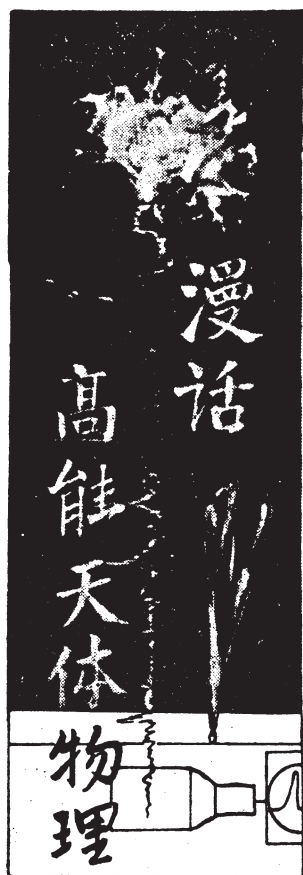 漫话
高能天体物理